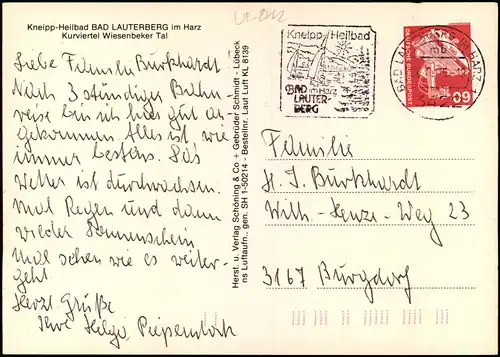 Kneipp-Heilbad BAD LAUTERBERG im Harz
Kurviertel Wiesenbeker Tal
Liebe Familie Burkhardt
Nach 3 stündiger Bahn-
reise bin ich hier gut an-
gekommen Alles ist wie
immer bestens. Das
Wetter ist durchwachsen.
Mal Regen und dann
wieder Sonnenschein
Mal sehen wie es weiter-
geht
Herzl Grüße
Ihre Helga Piependorck
Herst. u. Verlag Schöning & Co + Gebrüder Schmidt · Lübeck
ns Luftaufn., gen. SH 1-50214 - Bestellnr. Laut Luft KL 8139
Kneipp-Heilbad
BAD
im Harz
LAUTER-
BERG
BAD LAUTERBERG IM HARZ
mb
60
DEUTSCHE BUNDESPOST
Familie
H. J. Burkhardt
Wilh.-Henze-Weg 23
3167 Burgdorf